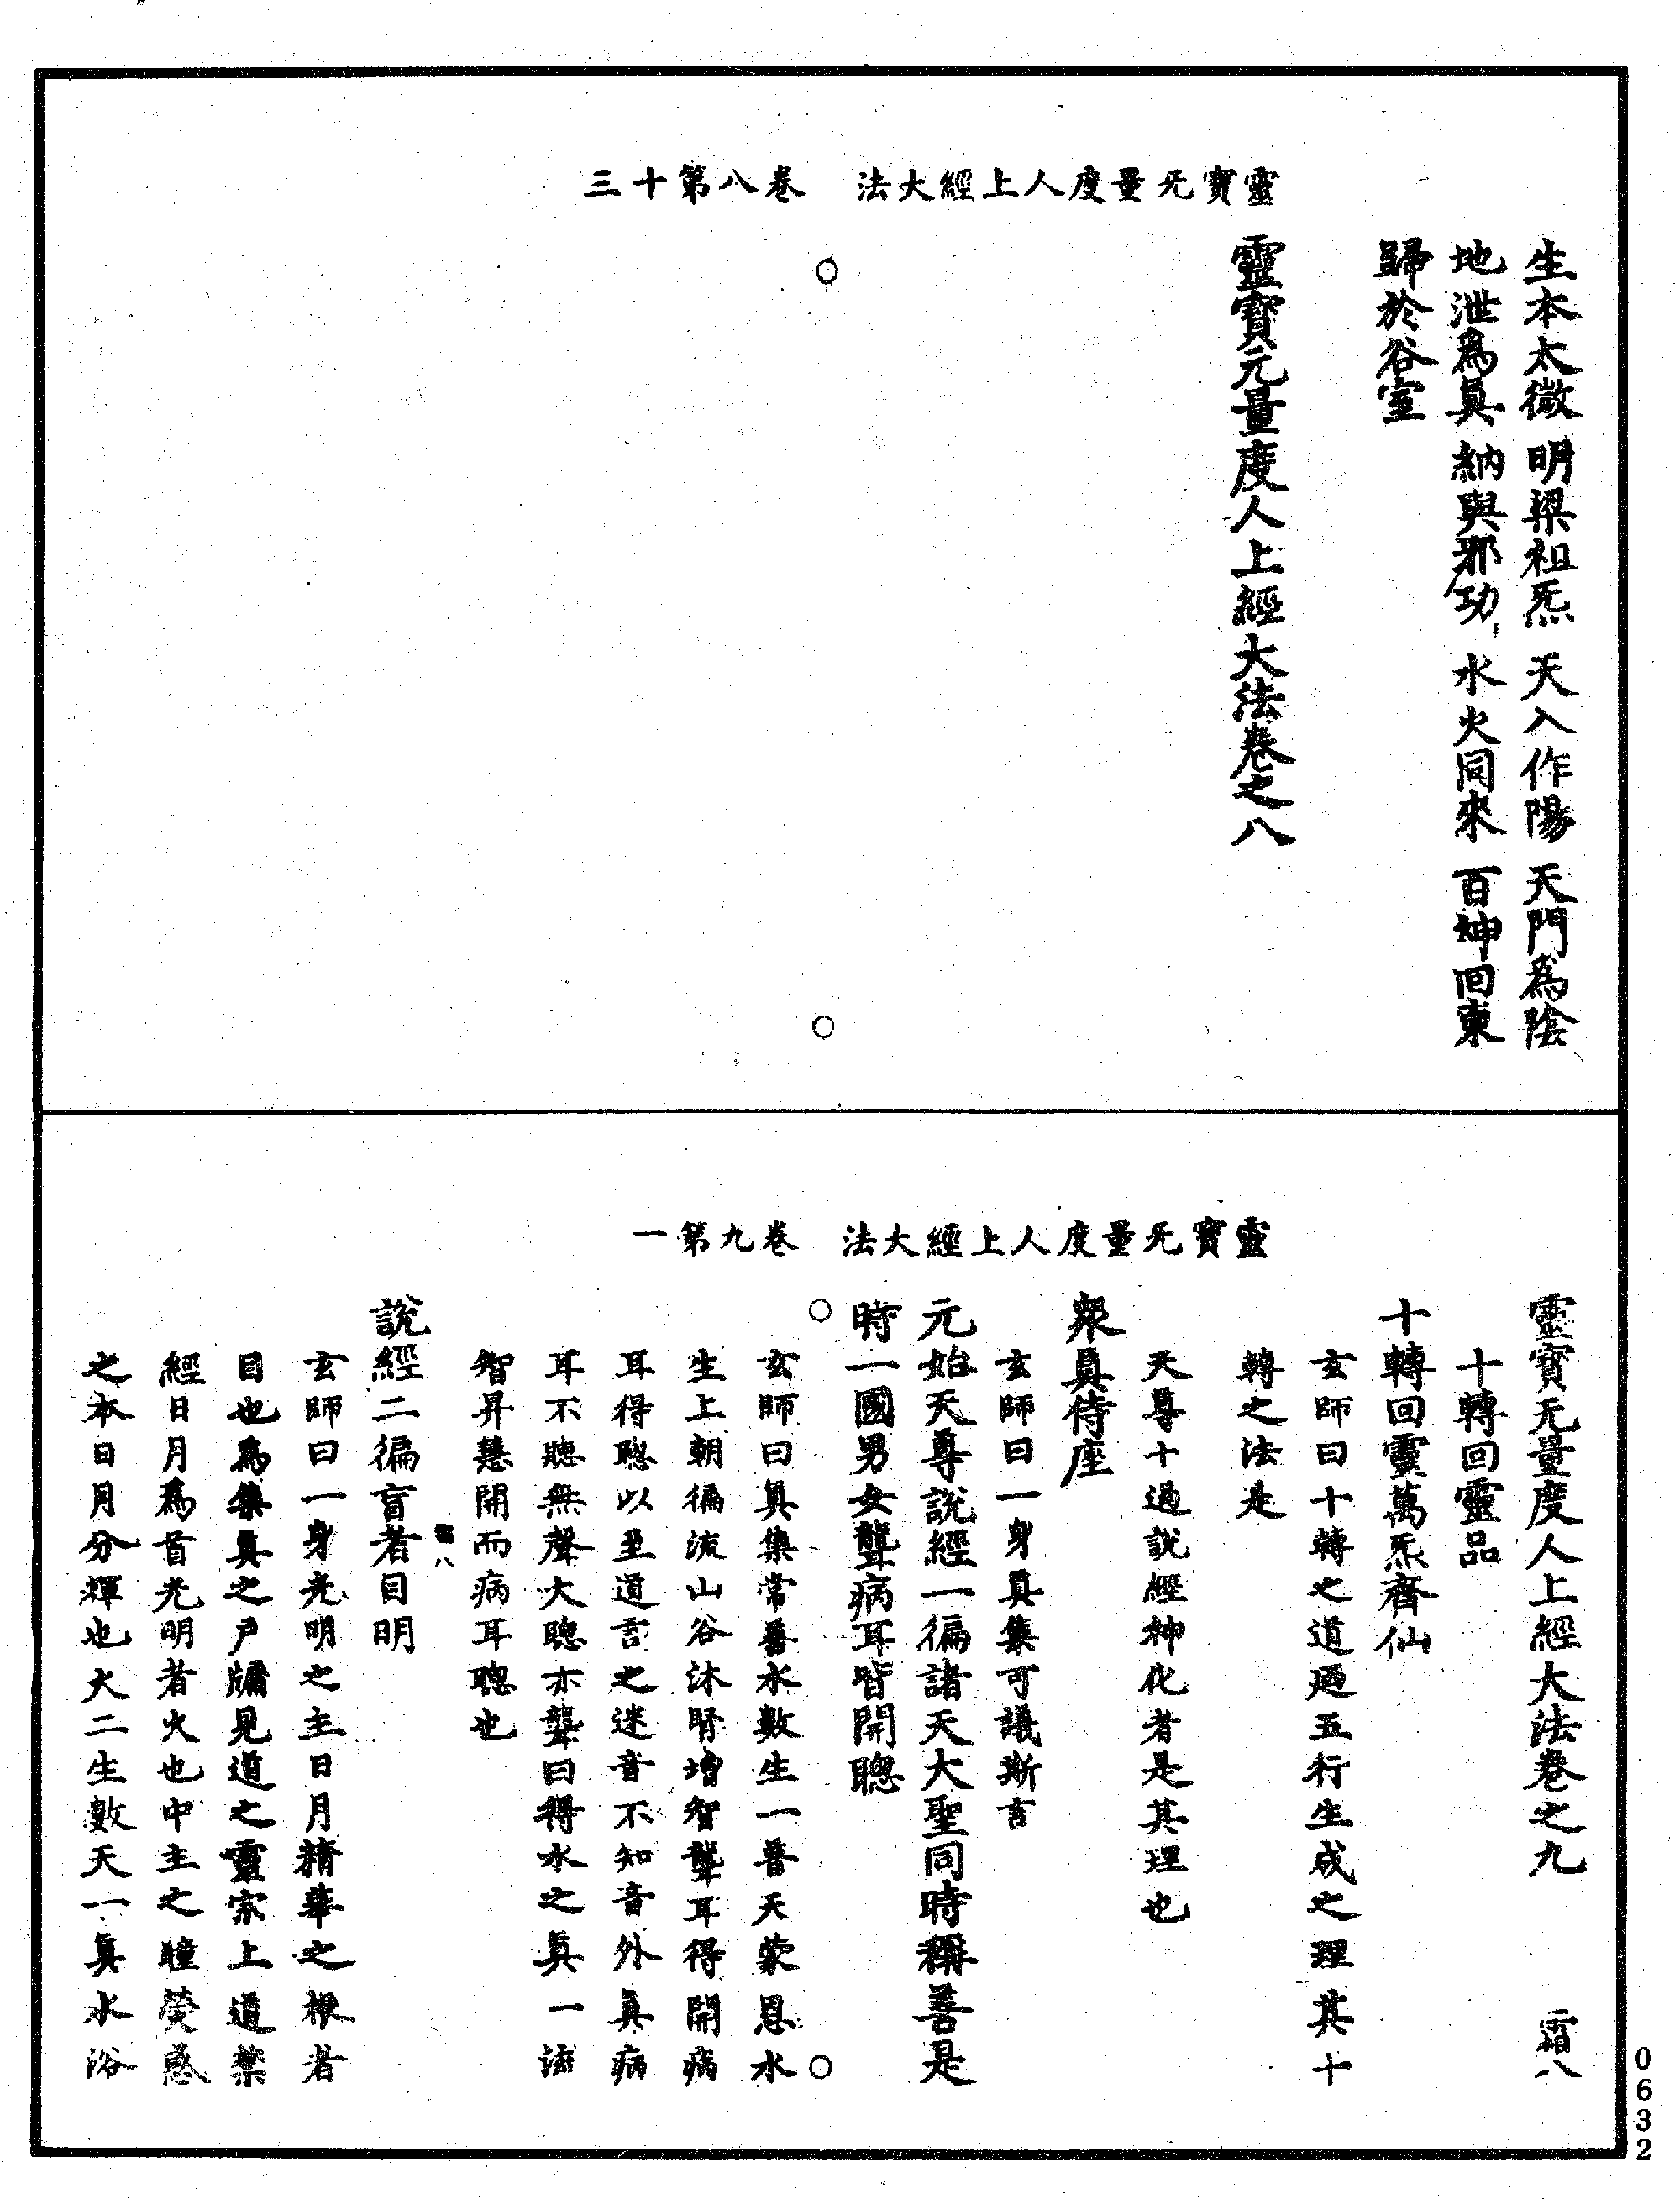 靈寶无量度人上經大法 卷八第十三
生本太微 明梁祖炁 天入作陽 天門爲陰
地泄爲真 納與邪功 水火同來 百神回東
歸於谷室
靈寶元量度人上經大法卷之八
靈寶无量度人上經大法 卷九第一
靈寶无量度人上經大法卷之九 霜八
十轉回靈品
十轉回靈萬炁齊仙
玄師曰十轉之道迺五行生成之理其十
轉之法是
天尊十過說經神化者是其理也
眾真侍座
玄師曰一身真集可議斯言
元始天尊說經一徧諸天大聖同時稱善是
時一國男女聾病耳皆開聰
玄師曰真集常善水數生一普天蒙恩水
生上朝徧流山谷沐腎增智聾耳得開病
耳得聰以至道言之迷音不知音外真病
耳不聽無聲大聰亦聾曰得水之真一法
智昇慧開而病耳聰也
霜八
說經二徧盲者目明
玄師曰一身光明之主日月精華之根者
目也爲集真之戶牖見道之靈宗上道禁
經日月爲首光明者火也中主之瞳熒惑
之本日月分輝也火二生數天一真水浴
0632